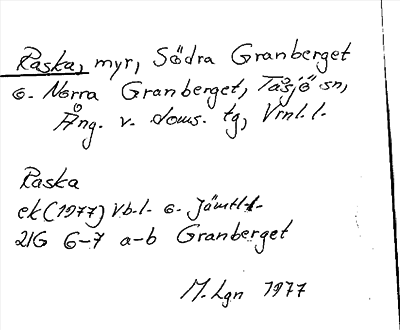 Raska, myr, Södra Granberget
o. Norra Granberget, Tåsjö sn,
Ång. v. doms. tg, Vrnl. l.
Raska
ek (1977) Vb. l. o. Jämtl. l.
21G 6-7 a-b Granberget
M. Lgn 1977